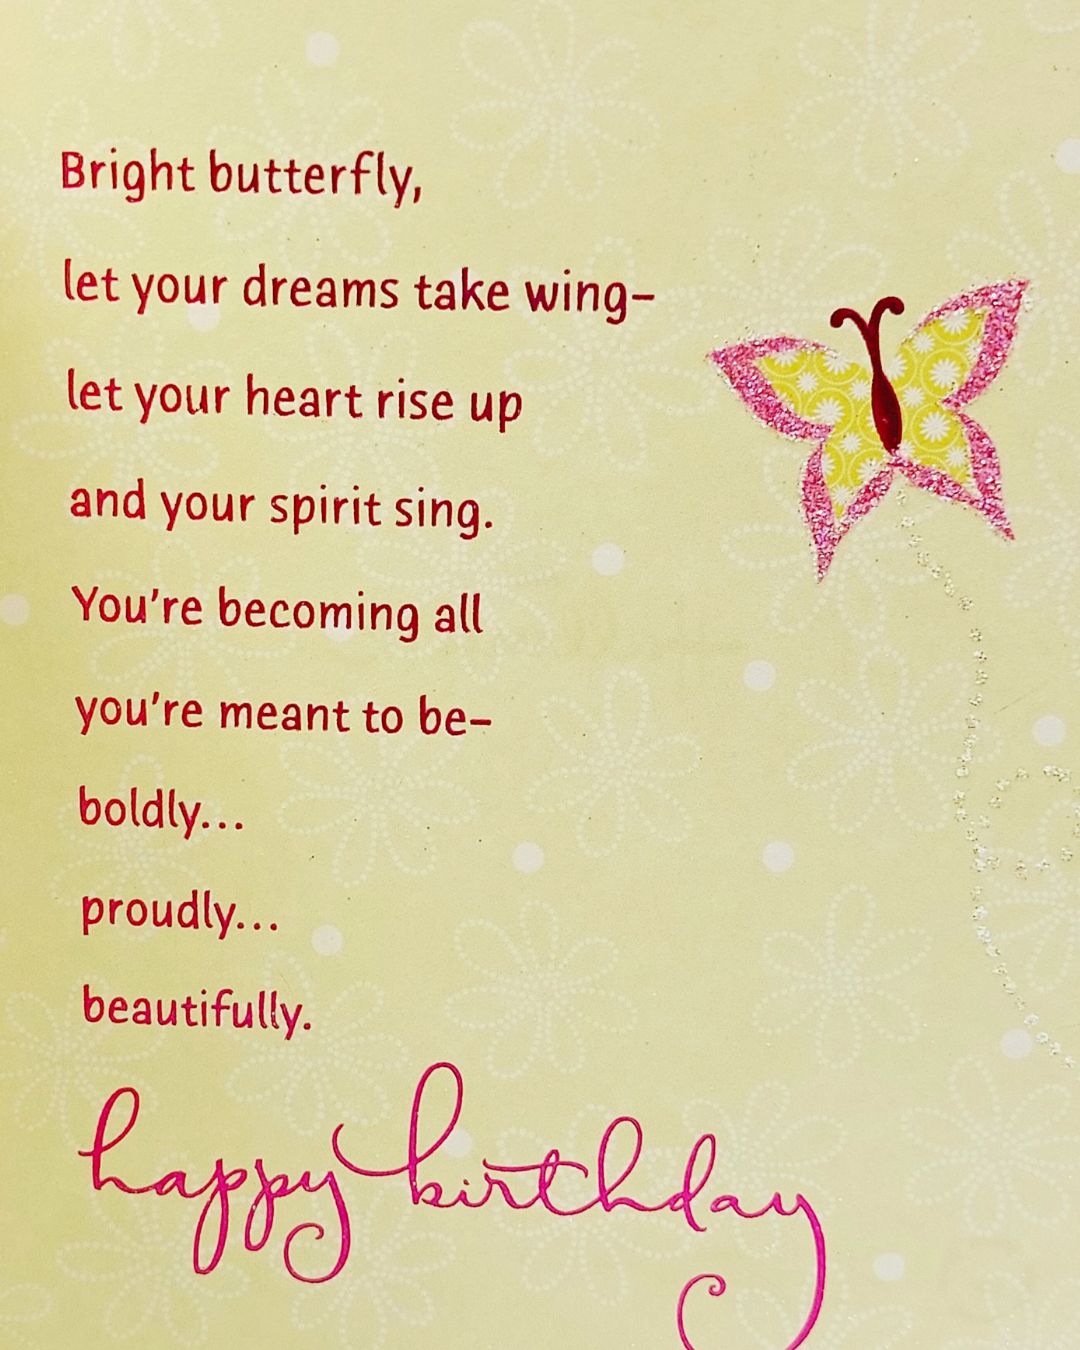 Bright butterfly,
let your dreams take wing–
let your heart rise up
and your spirit sing.
You're becoming all
you're meant to be–
boldly...
proudly...
beautifully.
happy birthday